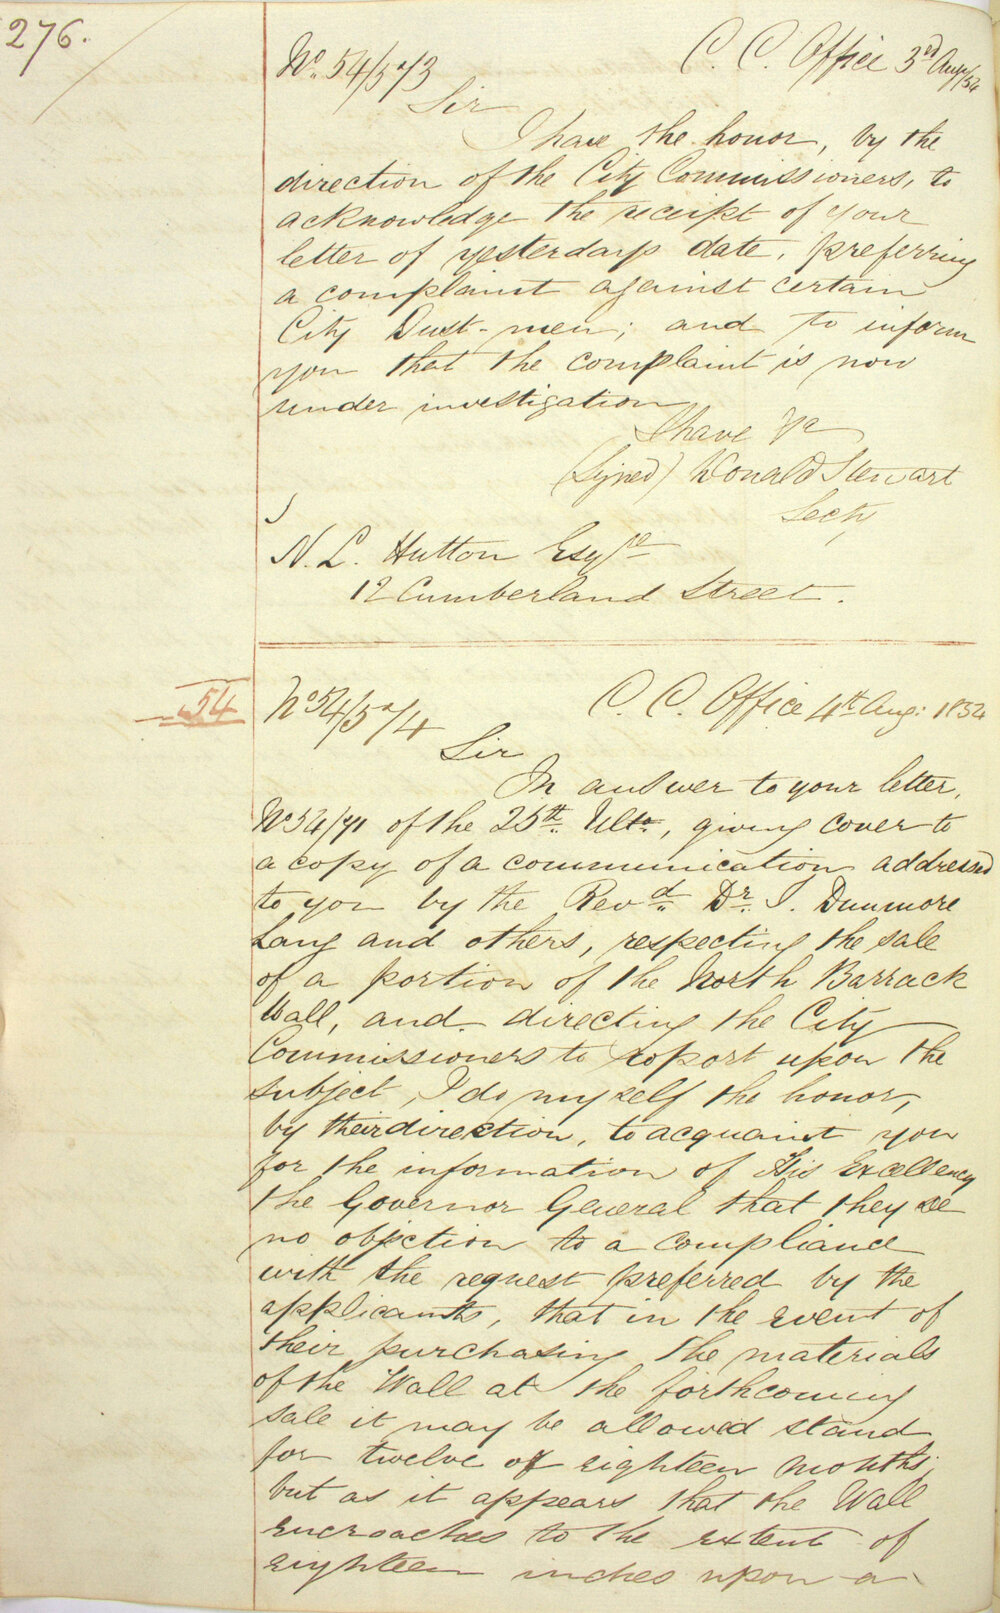 276.
No. 54/5a/3 C. C. Office 3rd Augt/54
Sir
I have the honor, by the
direction of the City Commissioners, to
acknowledge the receipt of your
letter of yesterdays date, preferring
a complaint against certain
City Dust-men; and to inform
you that the complaint is now
under investigation
I have &c
(Signed) Donald Stewart
Secty
N. L. Hutton Esqre
12 Cumberland Street.
54
No 54/5a/4 C. C. Office 4th Aug: 1854
Sir
In answer to your letter,
No 54/71 of the 25th. Ulto, giving cover to
a copy of a communication addressed
to you by the Revd. Dr. J. Dunmore
Lang and others, respecting the sale
of a portion of the North Barrack
Wall, and directing the City
Commissioners to report upon the
subject, I do myself the honor,
by their direction, to acquaint you
for the information of His Excellency
the Governor General that they see
no objection to a compliance
with the request preferred by the
applicants, that in the event of
their purchasing the materials
of the Wall at the forthcoming
sale it may be allowed stand
for twelve or eighteen months;
but as it appears that the Wall
encroaches to the extent of
eighteen inches upon a